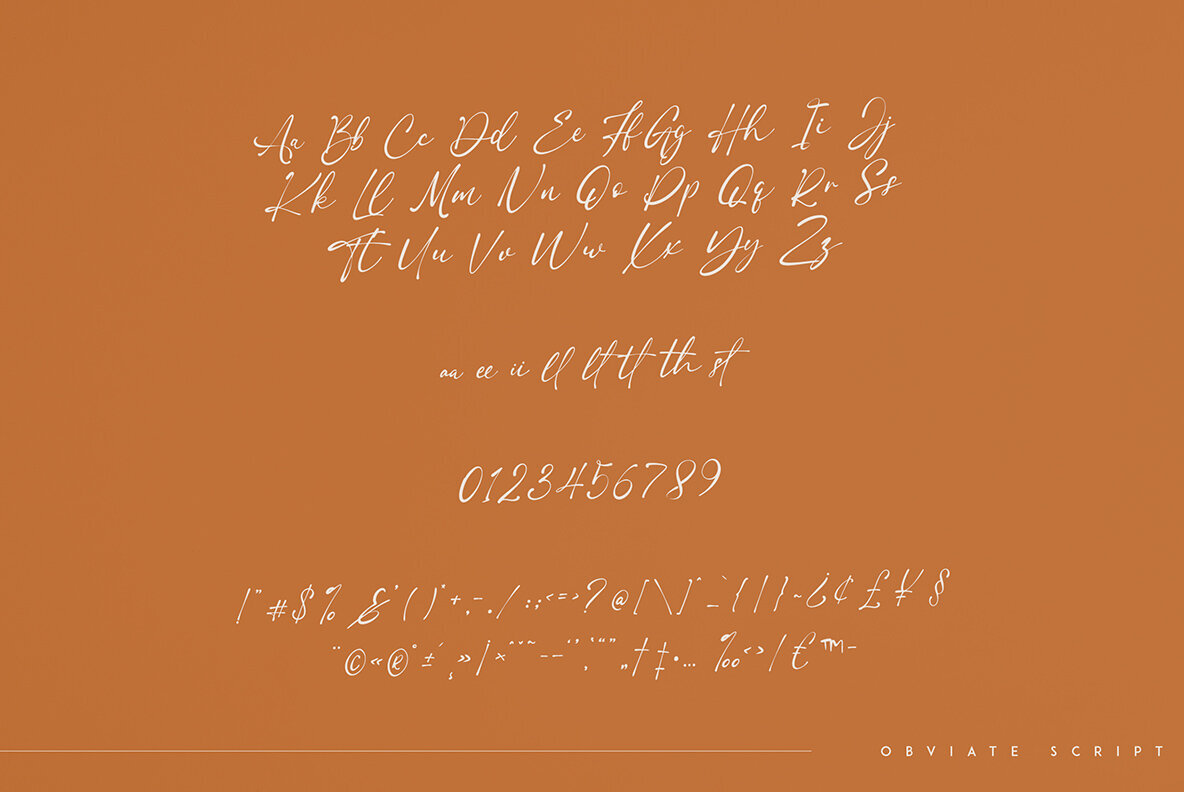 Aa Bb Cc Dd Ee Ff Gg Hh Ii Jj
Kk Ll Mm Nn Oo Pp Qq Rr Ss
Tt Uu Vv Ww Xx Yy Zz
aa ee ii ll lt tl th st
0123456789
!"#$%&'()*+,-./:;<=>?@[\]^_`{|}~¿¢£¥§
¨©«®°±´¸»¡×ˆˇ˜–—‘’‚“”„†‡•…‰‹›⁄€™−
OBVIATE SCRIPT